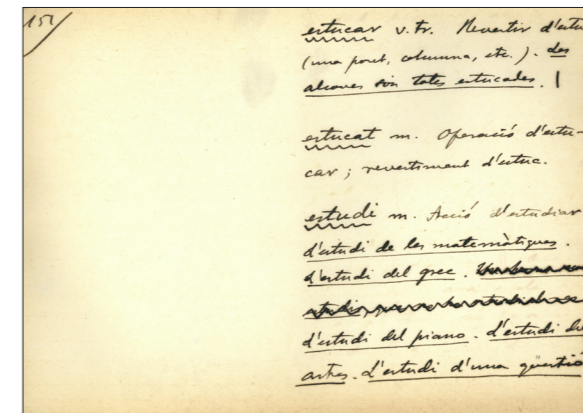 151
estucar v. tr. Revestir d'estu
(una paret, columna, etc.). Les
alcoves són totes estucades. |
estucat m. Operació d'estu-
car; revestiment d'estuc.
estudi m. Acció d'estudiar
L'estudi de les matemàtiques.
L'estudi del grec.
L'estudi del piano. L'estudi de
astres. L'estudi d'una qüestió